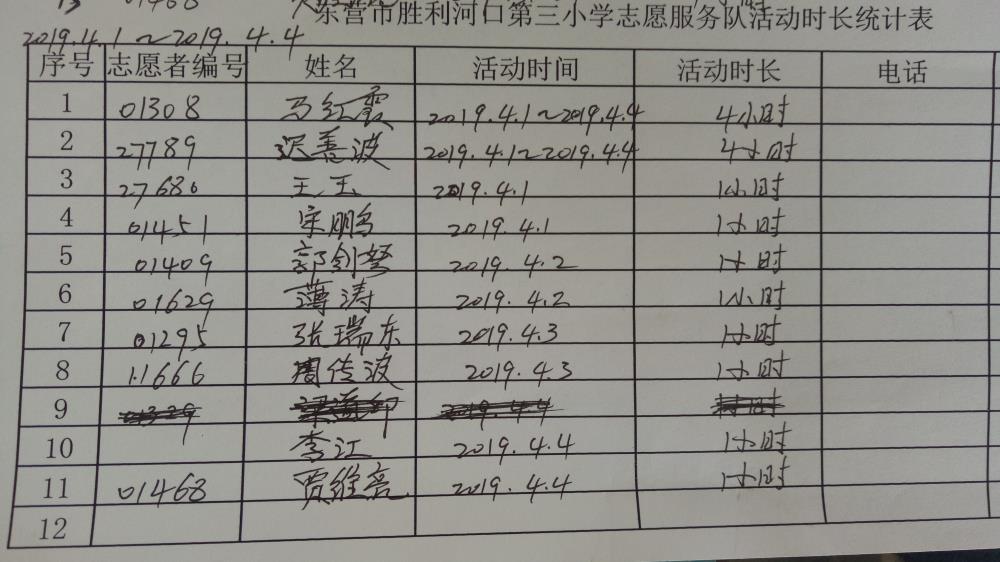 13 01468
东营市胜利河口第三小学志愿服务队活动时长统计表
2019.4.1~2019.4.4
序号 志愿者编号 姓名 活动时间 活动时长 电话
1 01308 马红霞 2019.4.1~2019.4.4 4小时
2 27789 迟善波 2019.4.1~2019.4.4 4小时
3 27680 王玉 2019.4.1 1小时
4 01451 宋鹏鸟 2019.4.1 1小时
5 01409 郭剑琴 2019.4.2 1小时
6 01629 薄涛 2019.4.2 1小时
7 01295 张瑞东 2019.4.3 1小时
8 11666 周传波 2019.4.3 1小时
9 01329 2019.4.4
10 李江 2019.4.4 1小时
11 01468 贾维亮 2019.4.4 1小时
12